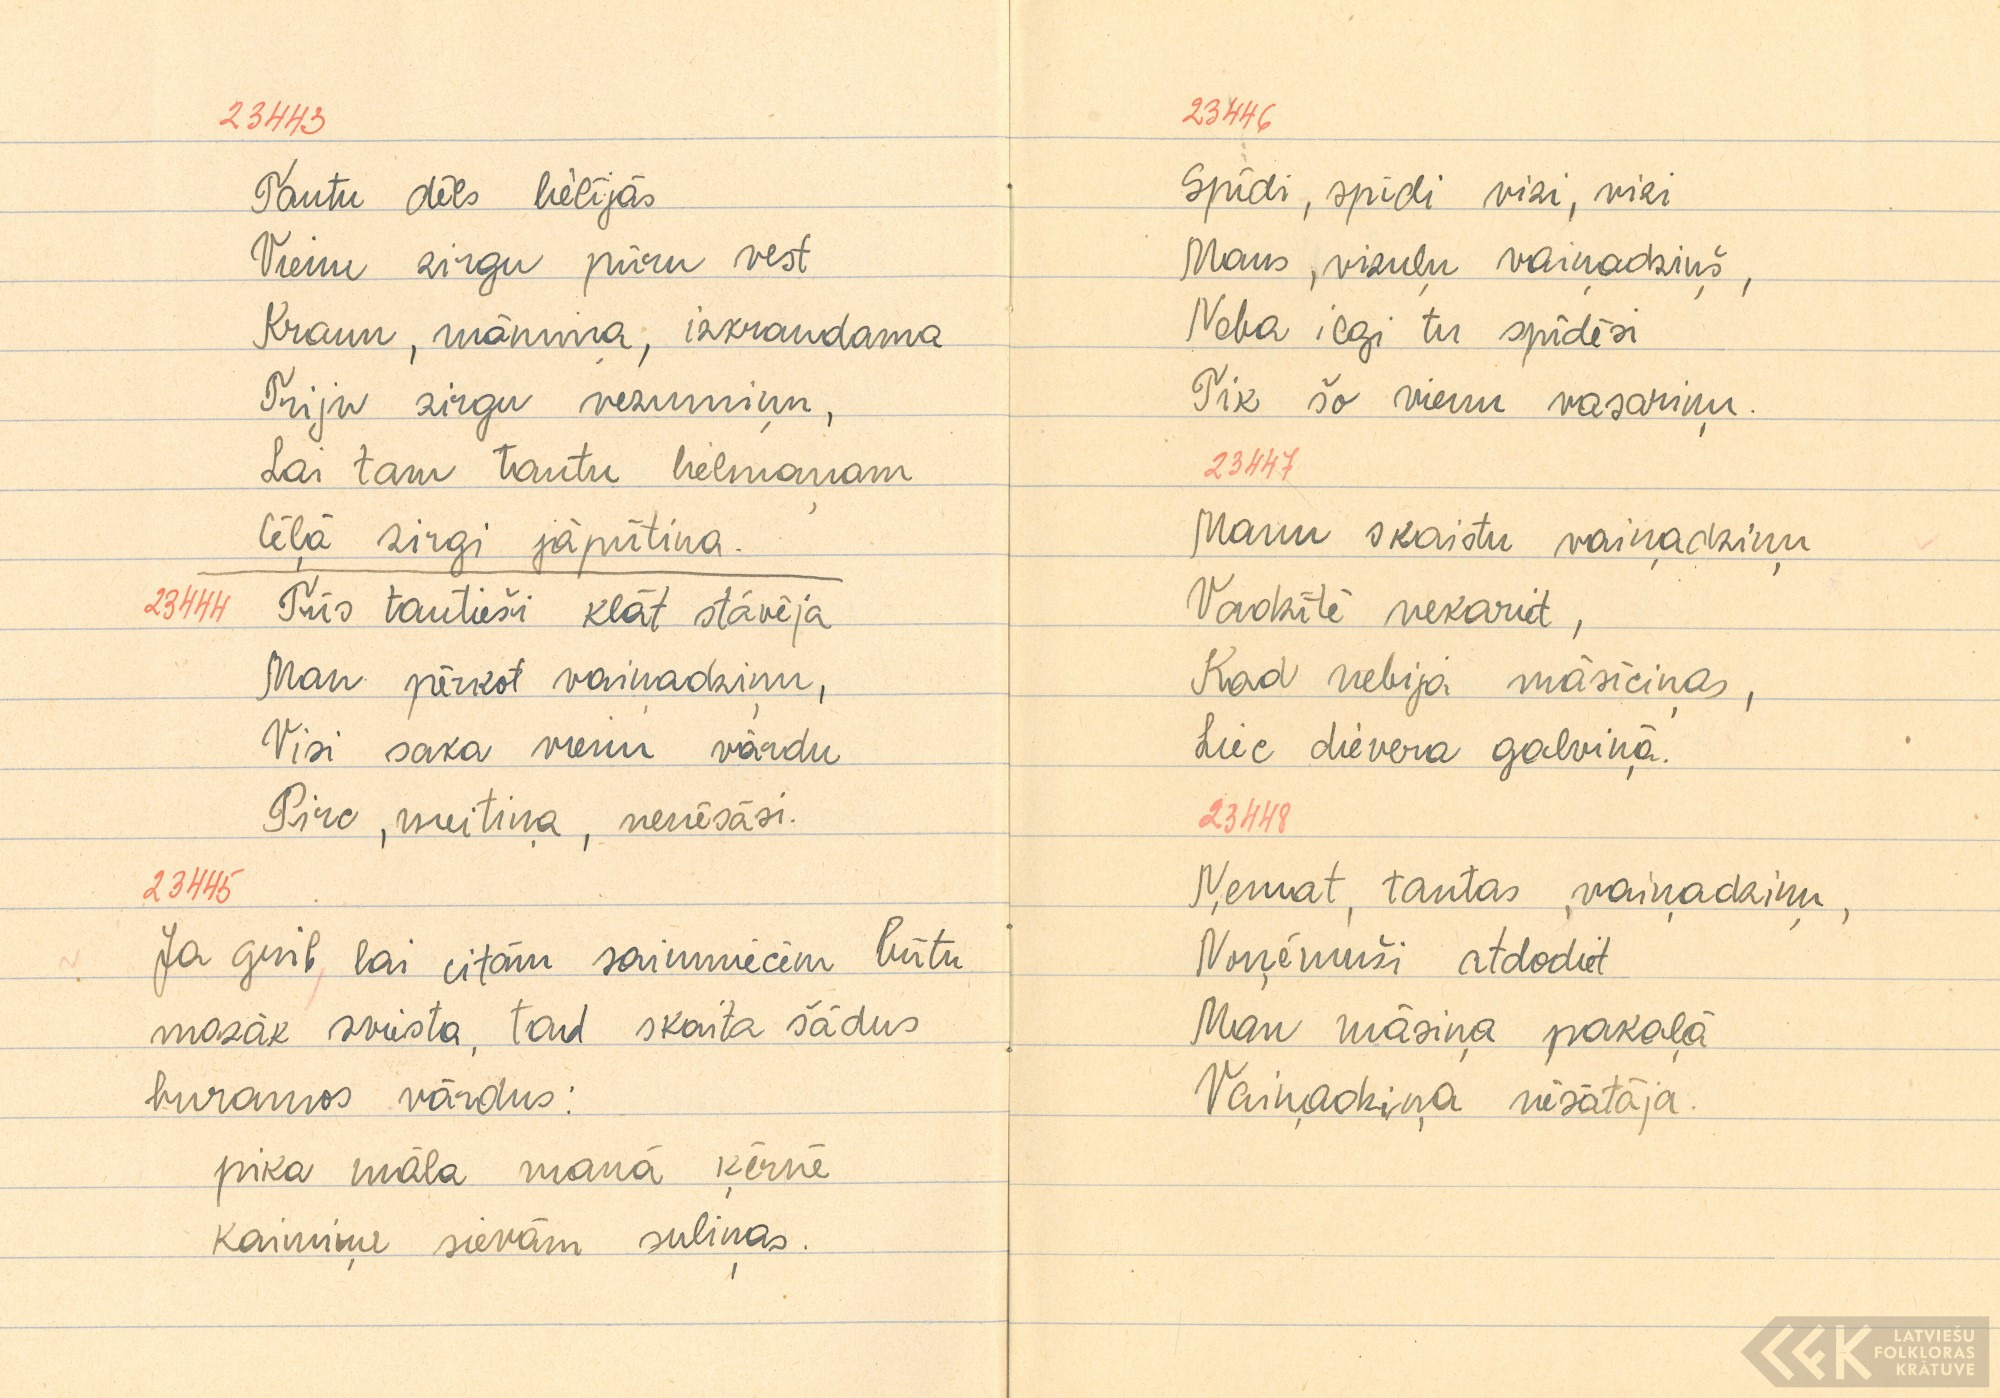 23443
Tautu dēls lielījās
Vienu zirgu pūru vest
Kraun, māmiņa, izkraudama
Triju zirgu vezumiņu,
Lai tam tautu lielmaņam
Ceļā zirgi jāpūtina.
23444 Trīs tautieši klāt stāvēja
Man pērkot vaiņadziņu,
Visi saka vienu vārdu
Pirc, meitiņa, nenēsāsi.
23445
Ja grib, lai citām saimniecēm būtu
mazāk sviesta, tad skaita šādus
buramos vārdus:
pika māla manā ķērnē
kaimiņe sievām suliņas.
23446
Spīdi, spīdi vizi, vizi
Mans, vizuļu vaiņadziņš,
Neba ilgi tu spīdēsi
Tik šo vienu vasariņu.
23447
Manu skaistu vaiņadziņu
Vadzītē nekariet,
Kad nebija māsiciņas,
Liec dievera galviņā.
23448
Ņemat, tautas, vaiņadziņu,
Noņēmuši atdodiet
Man māsiņa pakaļā
Vaiņadziņa nēsātāja.
LATVIEŠU
FOLKLORAS
KRĀTUVE